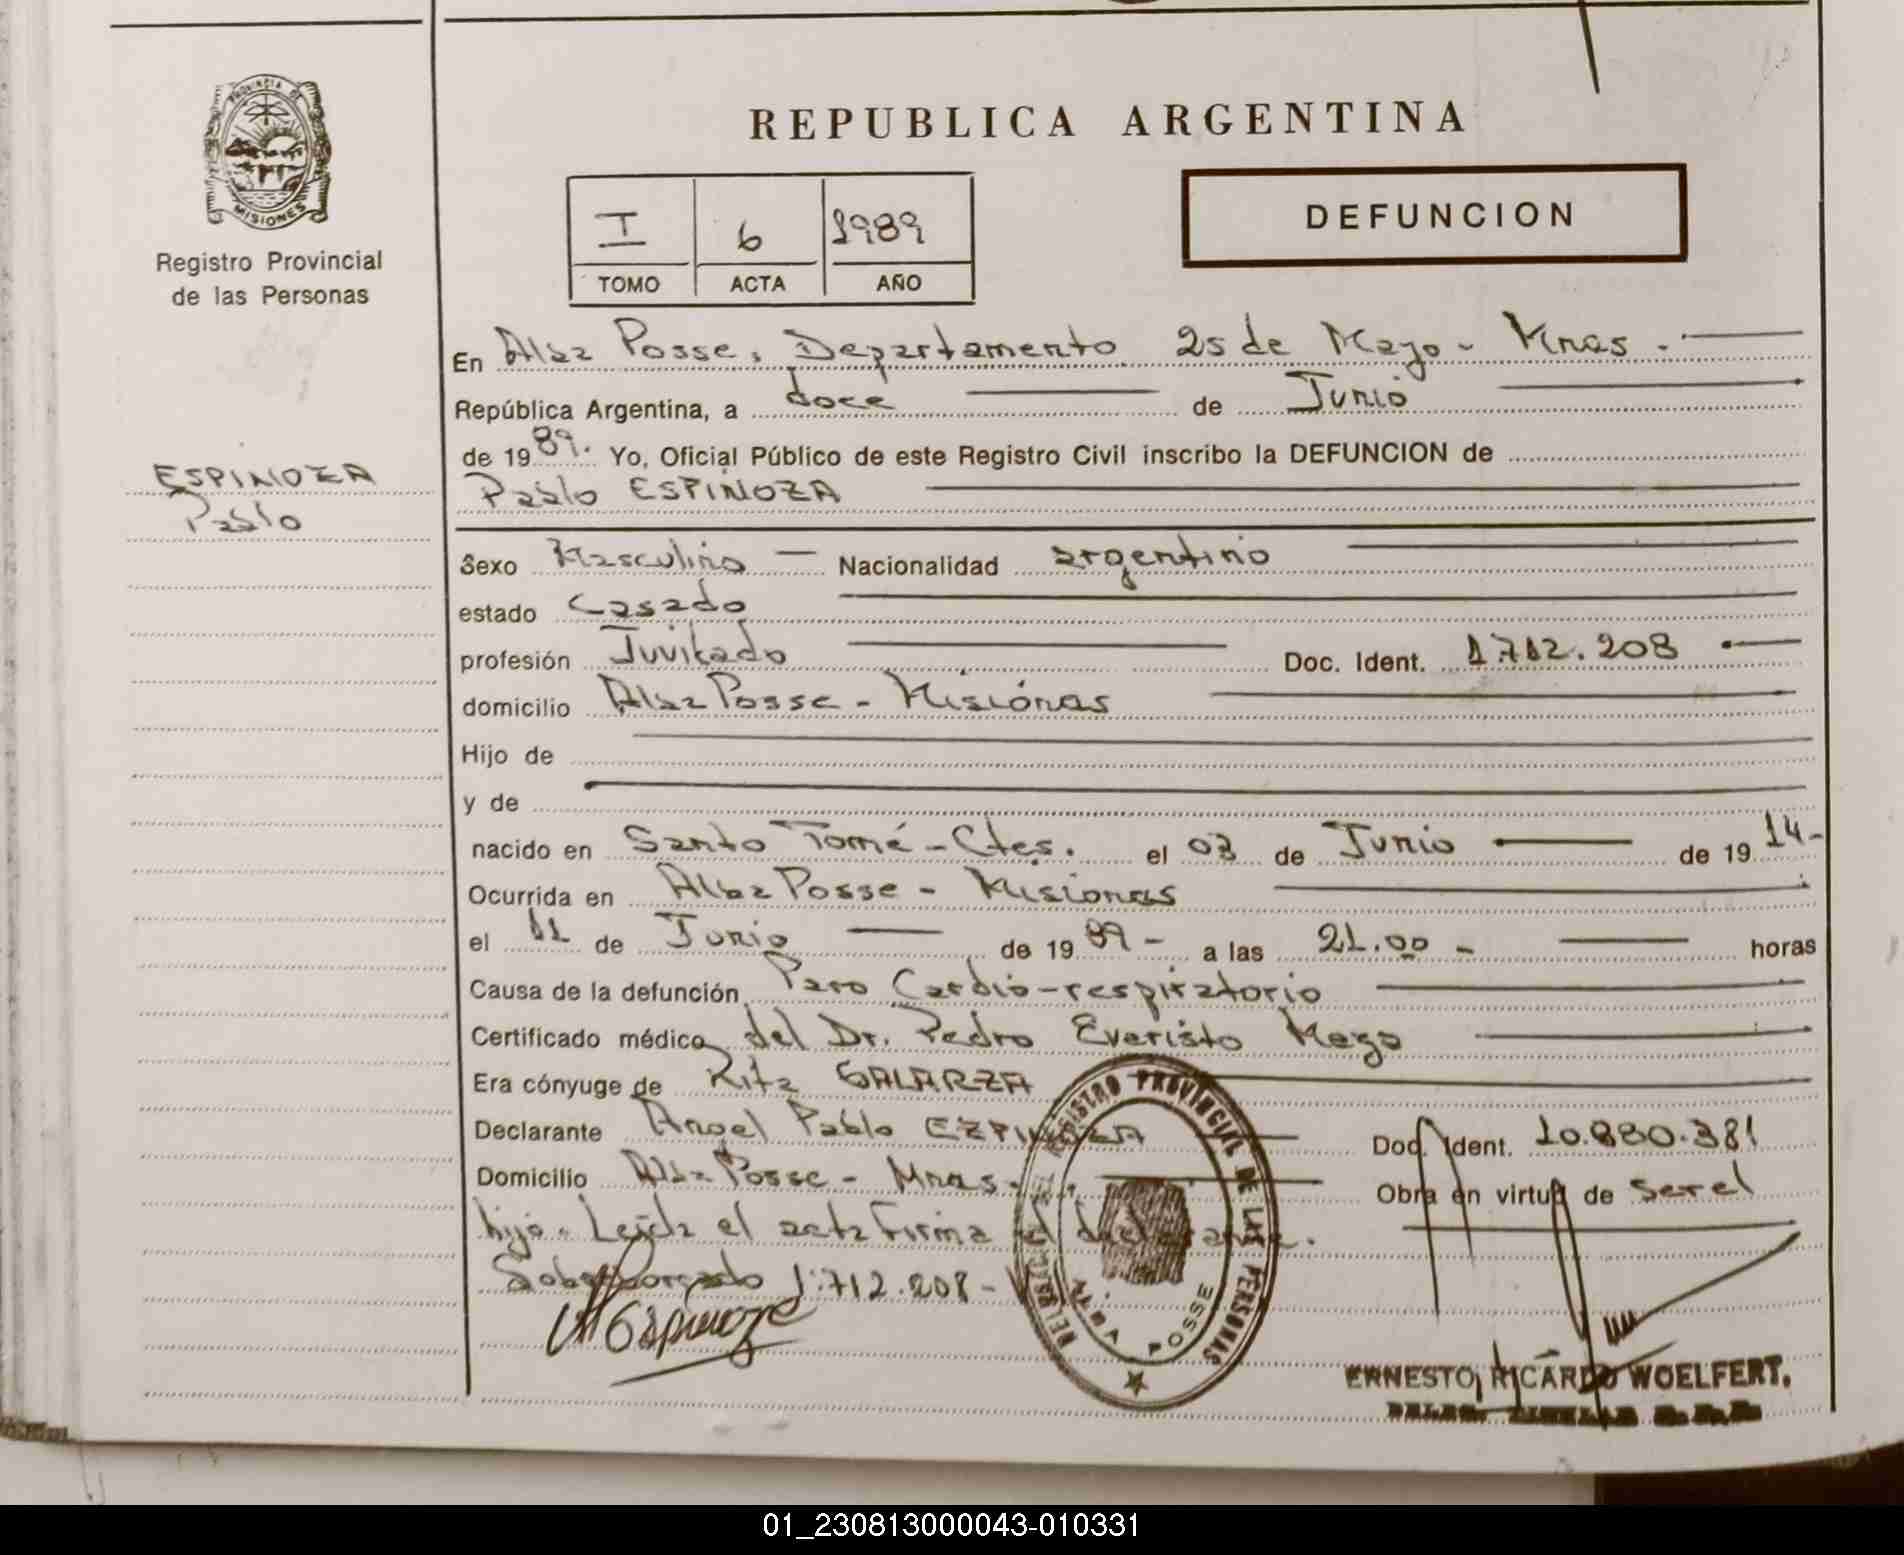 PROVINCIA DE
MISIONES
Registro Provincial
de las Personas
REPUBLICA ARGENTINA
I 6 1989
TOMO ACTA AÑO
DEFUNCION
En Alba Posse, Departamento 25 de Mayo - Mnes.
República Argentina, a doce de Junio
de 1989. Yo, Oficial Público de este Registro Civil inscribo la DEFUNCION de
Pablo ESPINOZA
ESPINOZA
Pablo
Sexo Masculino Nacionalidad argentino
estado Casado
profesión Juvilado Doc. Ident. 1.712.208
domicilio Alba Posse - Misiones
Hijo de
y de
nacido en Santo Tomé - Ctes. el 03 de Junio de 1914-
Ocurrida en Alba Posse - Misiones
el 11 de Junio de 1989- a las 21.00 - horas
Causa de la defunción Paro Cardio-respiratorio
Certificado médico del Dr. Pedro Everisto
Era cónyuge de Rita GALARZA
Declarante Angel Pablo Doc. Ident. 10.880.381
Domicilio Alba Posse - Mnes. Obra en virtud de Ser el
hijo. Leída el acta firma el declarante.
Sobreborrado 1.712.208 -
Espinoza
REGISTRO PROVINCIAL DE LAS PERSONAS
POSSE
ERNESTO RICARDO WOELFERT.
01_230813000043-010331